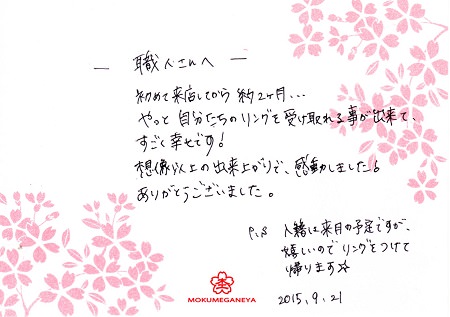 — 職人さんへ —
初めて来店してから 約2ヶ月...
やっと 自分たちのリングを受け取れる事が出来て、
すごく幸せです!
想像以上の出来上がりで、感動しました!
ありがとうございました。
P.S 入籍は来月の予定ですが、
嬉しいのでリングをつけて
帰ります☆
2015.9.21
MOKUMEGANEYA